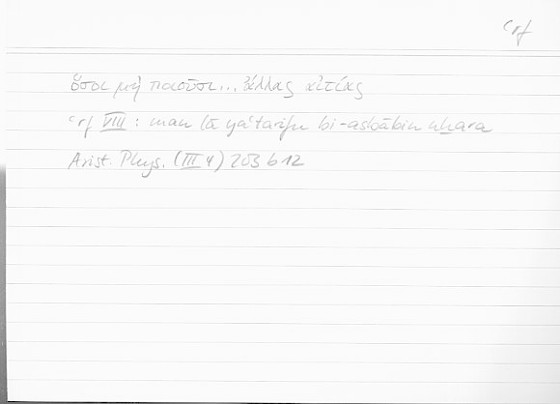 ʿrf
ὅσοι μὴ ποιοῦσι... ἄλλας αἰτίας
ʿrf VIII : man lā yaʿtarifu bi-asbābin uḫara
Arist. Phys. (III 4) 203 b 12